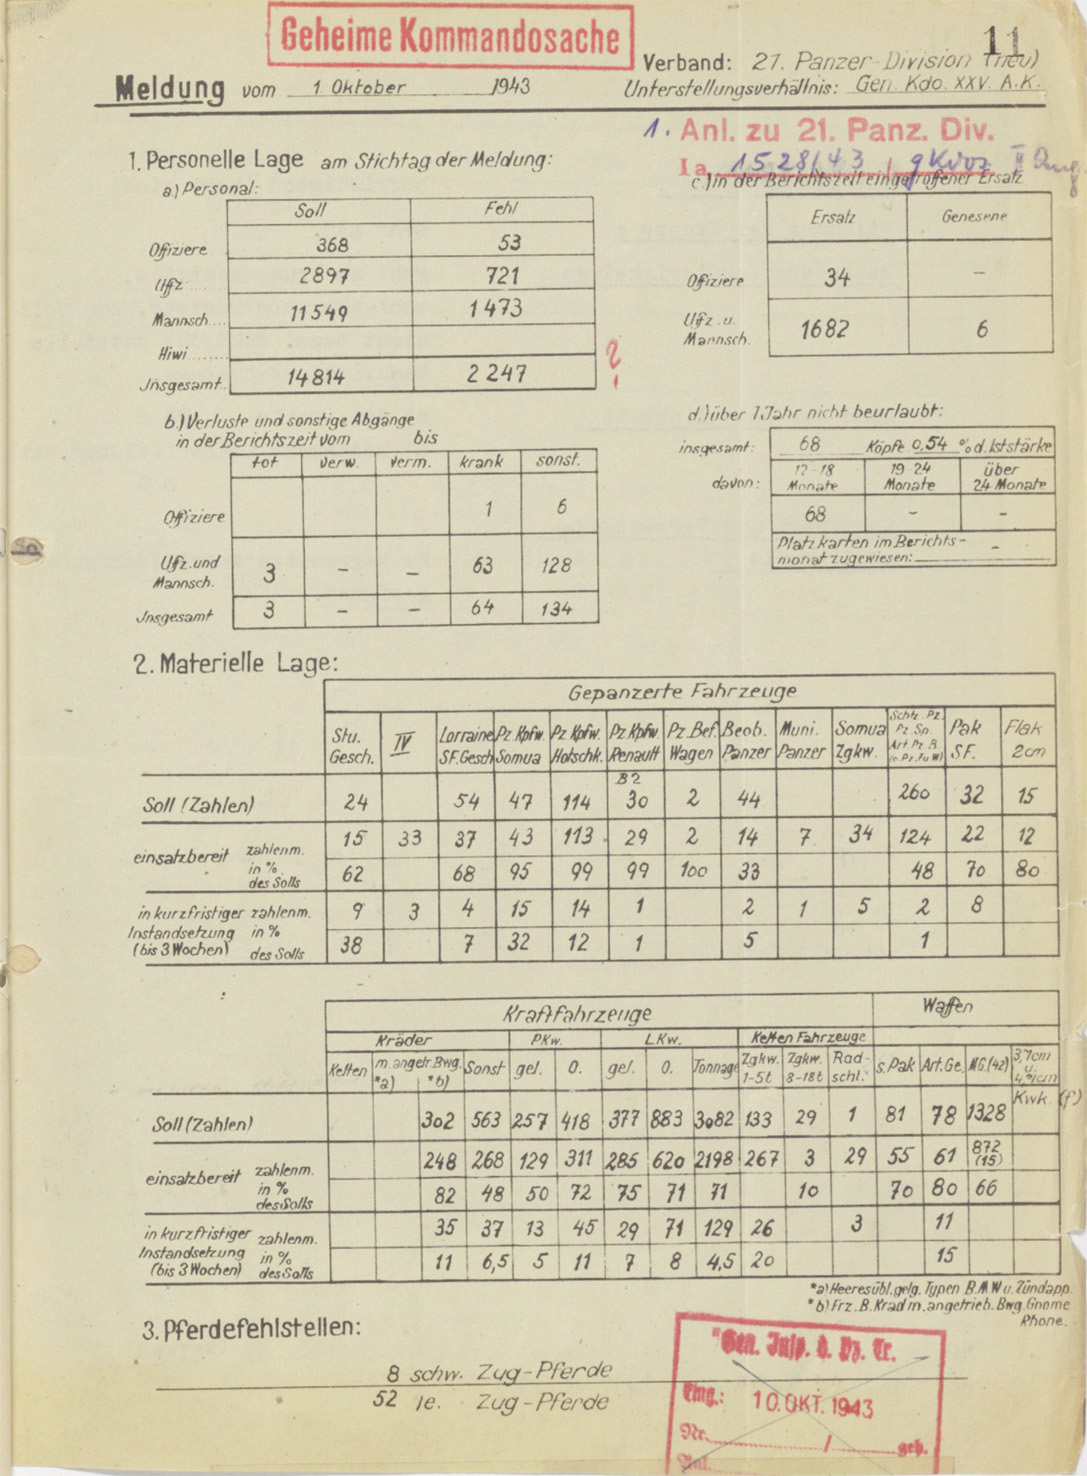 Geheime Kommandosache
11
Verband: 21. Panzer-Division (neu)
Meldung vom 1. Oktober 1943
Unterstellungsverhältnis: Gen. Kdo. XXV. A.K.
1. Anl. zu 21. Panz. Div.
Ia 1528/43 gKdos
1. Personelle Lage am Stichtag der Meldung:
a.) Personal:
Soll Fehl
Offiziere 368 53
Uffz 2897 721
Mannsch.... 11549 1473
Hiwi........
Insgesamt. 14814 2247
?
c.) in der Berichtszeit eingetroffener Ersatz
Ersatz Genesene
Offiziere 34 –
Ufz. u. Mannsch. 1682 6
b.) Verluste und sonstige Abgänge
in der Berichtszeit vom bis
tot verw. verm. krank sonst.
Offiziere 1 6
Ufz. und Mannsch. 3 – – 63 128
Insgesamt 3 – – 64 134
d.) über 1 Jahr nicht beurlaubt:
insgesamt: 68 Köpfe 0,54 % d. Iststärke
davon: 12-18 Monate 19-24 Monate über 24 Monate
68 – –
Platzkarten im Berichts-
monat zugewiesen: –
2. Materielle Lage:
Gepanzerte Fahrzeuge
Stu. Gesch. IV Lorraine SF. Gesch Pz Kpfw. Somua Pz Kpfw. Hotschk. Pz Kpfw Renault B2 Pz. Bef. Wagen Beob. Panzer Muni. Panzer Somua Zgkw. Schtz. Pz. Pz. Sp. Art. Pz. B. (o. Pz. Fu W) Pak SF. Flak 2cm
Soll (Zahlen) 24 54 47 114 30 2 44 260 32 15
einsatzbereit zahlenm. 15 33 37 43 113 29 2 14 7 34 124 22 12
in % des Solls 62 68 95 99 99 100 33 48 70 80
in kurzfristiger Instandsetzung (bis 3 Wochen) zahlenm. 9 3 4 15 14 1 2 1 5 2 8
in % des Solls 38 7 32 12 1 5 1
Kraftfahrzeuge Waffen
Kräder PKw. LKw. Ketten Fahrzeuge
Ketten m. angetr. Bwg. *a) *b) Sonst gel. O. gel. O. Tonnage Zgkw. 1-5t Zgkw. 8-18t Rad-schl. s. Pak Art. Ge. MG. (42) 3,7cm u. 4,7cm Kwk. (f)
Soll (Zahlen) 302 563 257 418 377 883 3082 133 29 1 81 78 1328
einsatzbereit zahlenm. 248 268 129 311 285 620 2198 267 3 29 55 61 872 (15)
in % des Solls 82 48 50 72 75 71 71 10 70 80 66
in kurzfristiger Instandsetzung (bis 3 Wochen) zahlenm. 35 37 13 45 29 71 129 26 3 11
in % des Solls 11 6,5 5 11 7 8 4,5 20 15
*a) Heeresübl. gelg. Typen B.M.W u. Zündapp.
*b) Frz. B. Krad m. angetrieb. Bwg. Gnome Rhone.
3. Pferdefehlstellen:
8 schw. Zug-Pferde
52 le. Zug-Pferde
Gen. Insp. d. Pz. Tr.
Eing.: 10. OKT. 1943
Nr. / geh.
Anl.